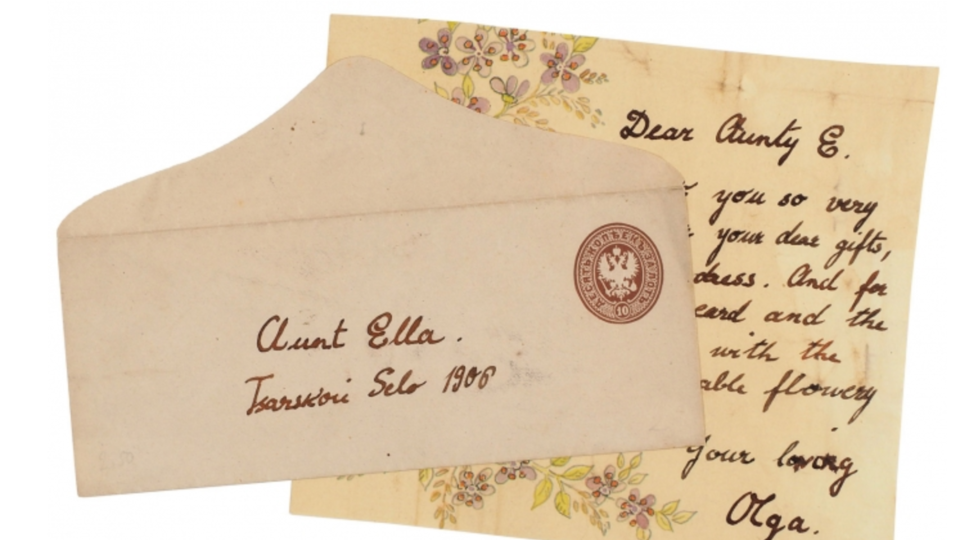 Aunt Ella.
Tsarskoie Selo 1906
ДЕСЯТЬ КОПѢЕКЪ ЗА ЛОТЪ
10
Dear Aunty E.
you so very
your dear gifts,
dress. And for
card and the
with the
able flowery
Your loving
Olga.